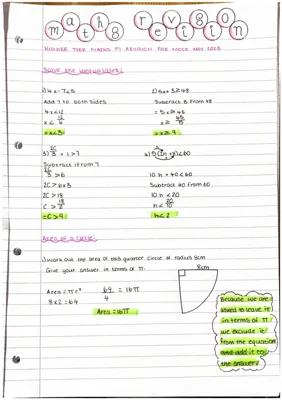 maths revision
HIGHER TIER MATHS P1 REVISION FOR MOCK NOV 2023
Solve the inequalities:
1) 4x-7<5
Add 7 to both sides
4x<12
x< 12/4
=x<3
2) 5x+3≥48
Subtract 3 from 48
=5x≥45
x≥ 45/5
=x≥9
3) 2C/3 +1>7
Subtract 1 from 7
2C/3 >6
2C>6x3
2C>18
C> 18/2
=C>9
4) 5(2n+8)<60
10n+40<60
Subtract 40 from 60
10n<20
n< 20/10
n<2
Area of a circle:
1) Work out the area of this quarter circle of radius 8cm
Give your answer in terms of π.
8cm
Area=πr² 64/4 =16π
8x2=64
Area=16π
Because we are
asked to leave it
in terms of π
we exclude it
from the equation
and add it to
the answer!